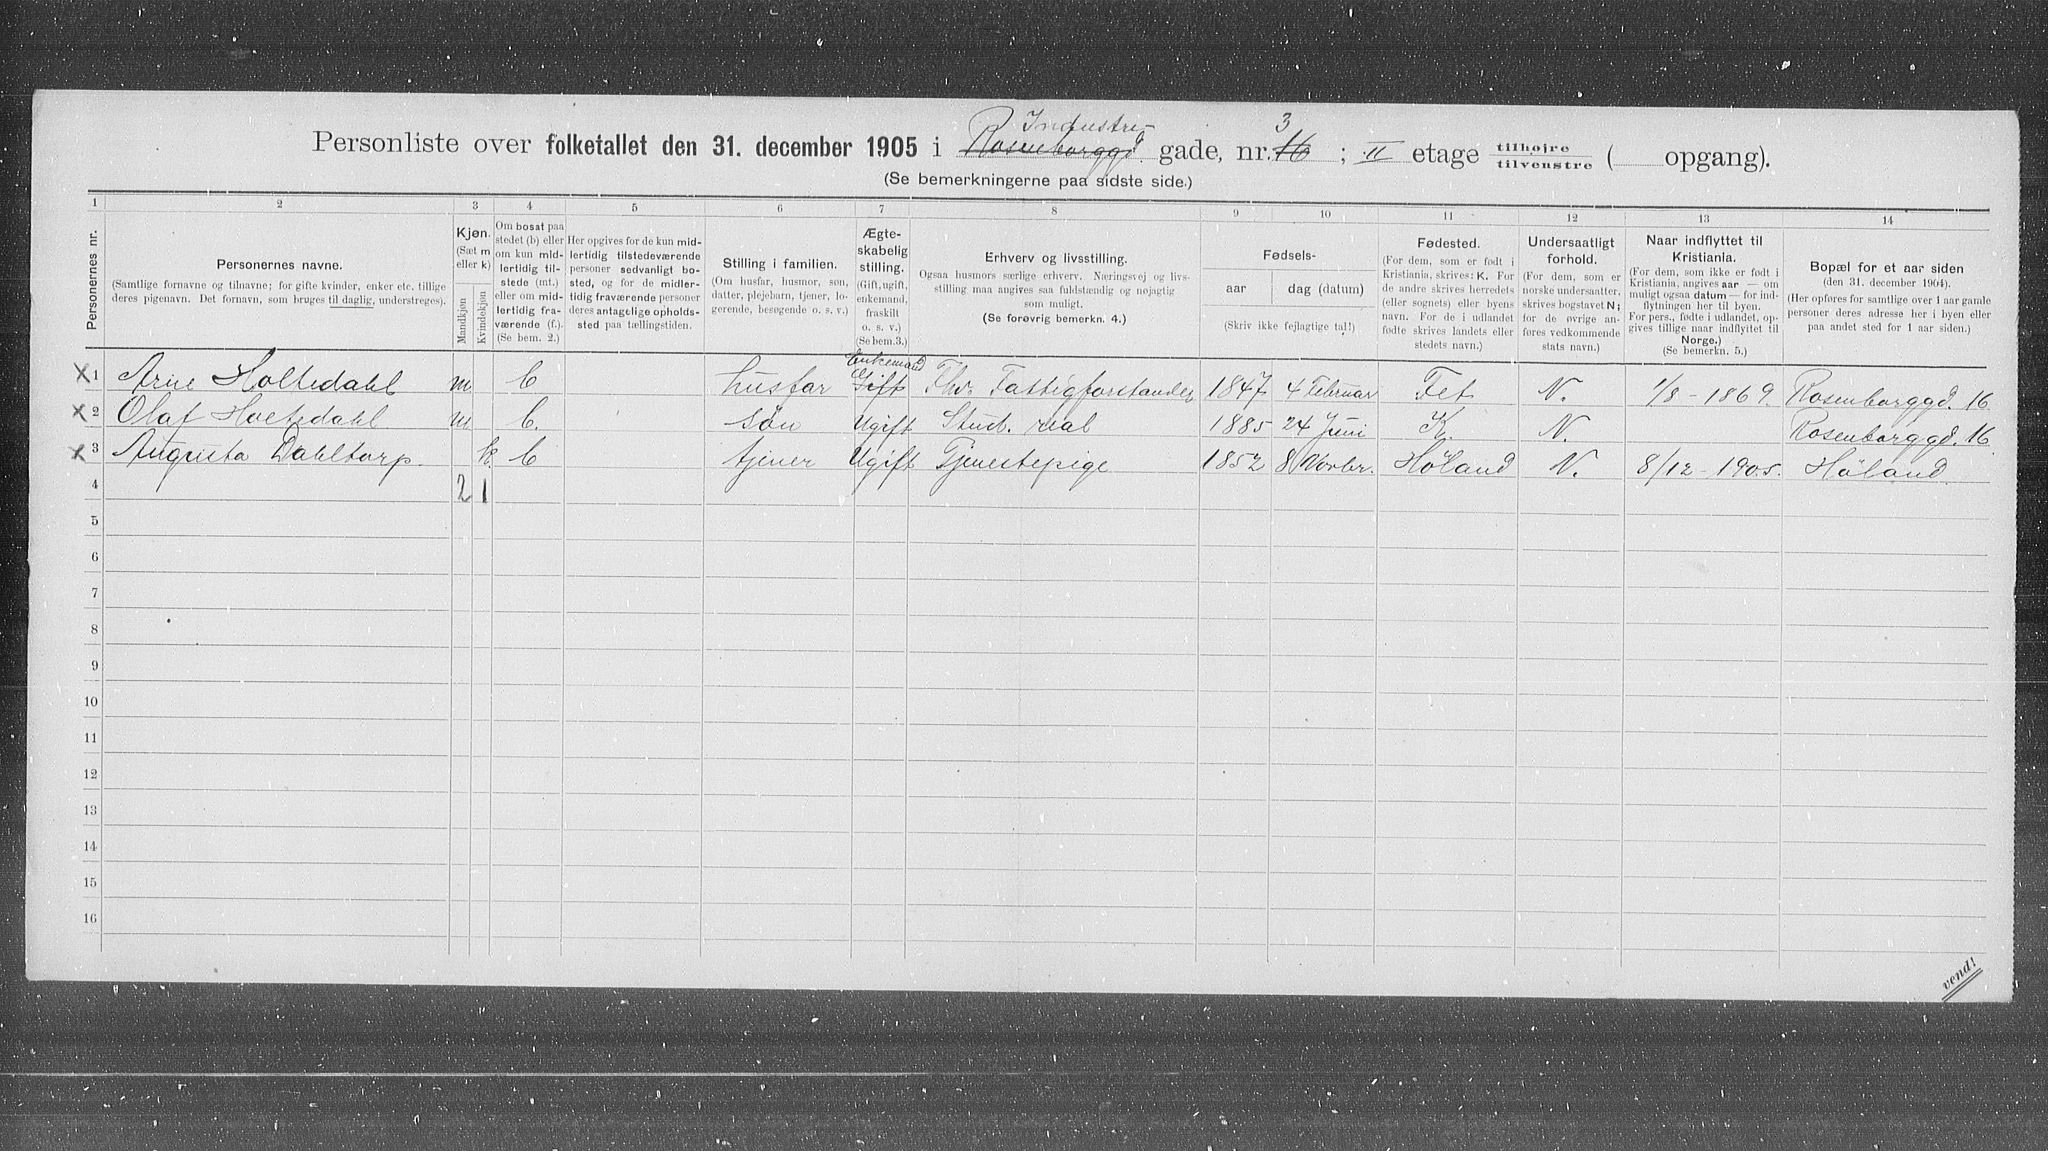 Personliste over folketallet den 31. december 1905 i ~~Rosenborggd.~~ Industri- gade, nr. ~~16~~ 3 ; II etage tilhøjre tilvenstre ( opgang).
(Se bemerkningerne paa sidste side.)
1 2 3 4 5 6 7 8 9 10 11 12 13 14
Personernes nr.
Personernes navne.
(Samtlige fornavne og tilnavne; for gifte kvinder, enker etc. tillige
deres pigenavn. Det fornavn, som bruges til daglig, understreges).
Kjøn.
(Sæt m
eller k)
Mandkjøn
Kvindekjøn
Om bosat paa
stedet (b) eller
om kun mid-
lertidig til-
stede (mt.)
eller om mid-
lertidig fra-
værende (f.)
(Se bem. 2.)
Her opgives for de kun mid-
lertidig tilstedeværende
personer sedvanligt bo-
sted, og for de midler-
tidig fraværende personer
deres antagelige opholds-
sted paa tællingstiden.
Stilling i familien.
(Om husfar, husmor, søn,
datter, plejebarn, tjener, lo-
gerende, besøgende o. s. v.)
Ægte-
skabelig
stilling.
(Gift, ugift,
enkemand,
fraskilt
o. s. v.)
(Se bem.3.)
Erhverv og livsstilling.
Ogsaa husmors særlige erhverv. Næringsvej og livs-
stilling maa angives saa fuldstændig og nøjagtig
som muligt.
(Se forøvrig bemerkn. 4.)
Fødsels-
aar dag (datum)
(Skriv ikke fejlagtige tal!)
Fødested.
(For dem, som er født i
Kristiania, skrives: K. For
de andre skrives herredets
(eller sognets) eller byens
navn. For de i udlandet
fødte skrives landets eller
stedets navn.)
Undersaatligt
forhold.
(For dem, som er
norske undersaatter,
skrives bogstavet N;
for de øvrige an-
føres vedkommende
stats navn.)
Naar indflyttet til
Kristiania.
(For dem, som ikke er født i
Kristiania, angives aar — om
muligt ogsaa datum — for ind-
flytningen her til byen.
For pers., fødte i udlandet, op-
gives tillige naar indflyttet til
Norge.)
(Se bemerkn. 5.)
Bopæl for et aar siden
(den 31. december 1904).
(Her opføres for samtlige over 1 aar gamle
personer deres adresse her i byen eller
paa andet sted for 1 aar siden.)
x 1 Arne Holtedahl m b husfar ~~Gift~~ Enkemand Fhv. Fattigforstander 1847 4 Februar Fet N. 1/8 - 1869. Rosenborggd. 16
x 2 Olaf Holtedahl m b. søn Ugift Stud. real 1885 24 Juni K. N. Rosenborggd. 16
x 3 Augusta Dahltorp. k. b tjener Ugift Tjenestepige 1852 8 Novbr. Høland N. 8/12 - 1905. Høland
4 2 1
5
6
7
8
9
10
11
12
13
14
15
16
vend!